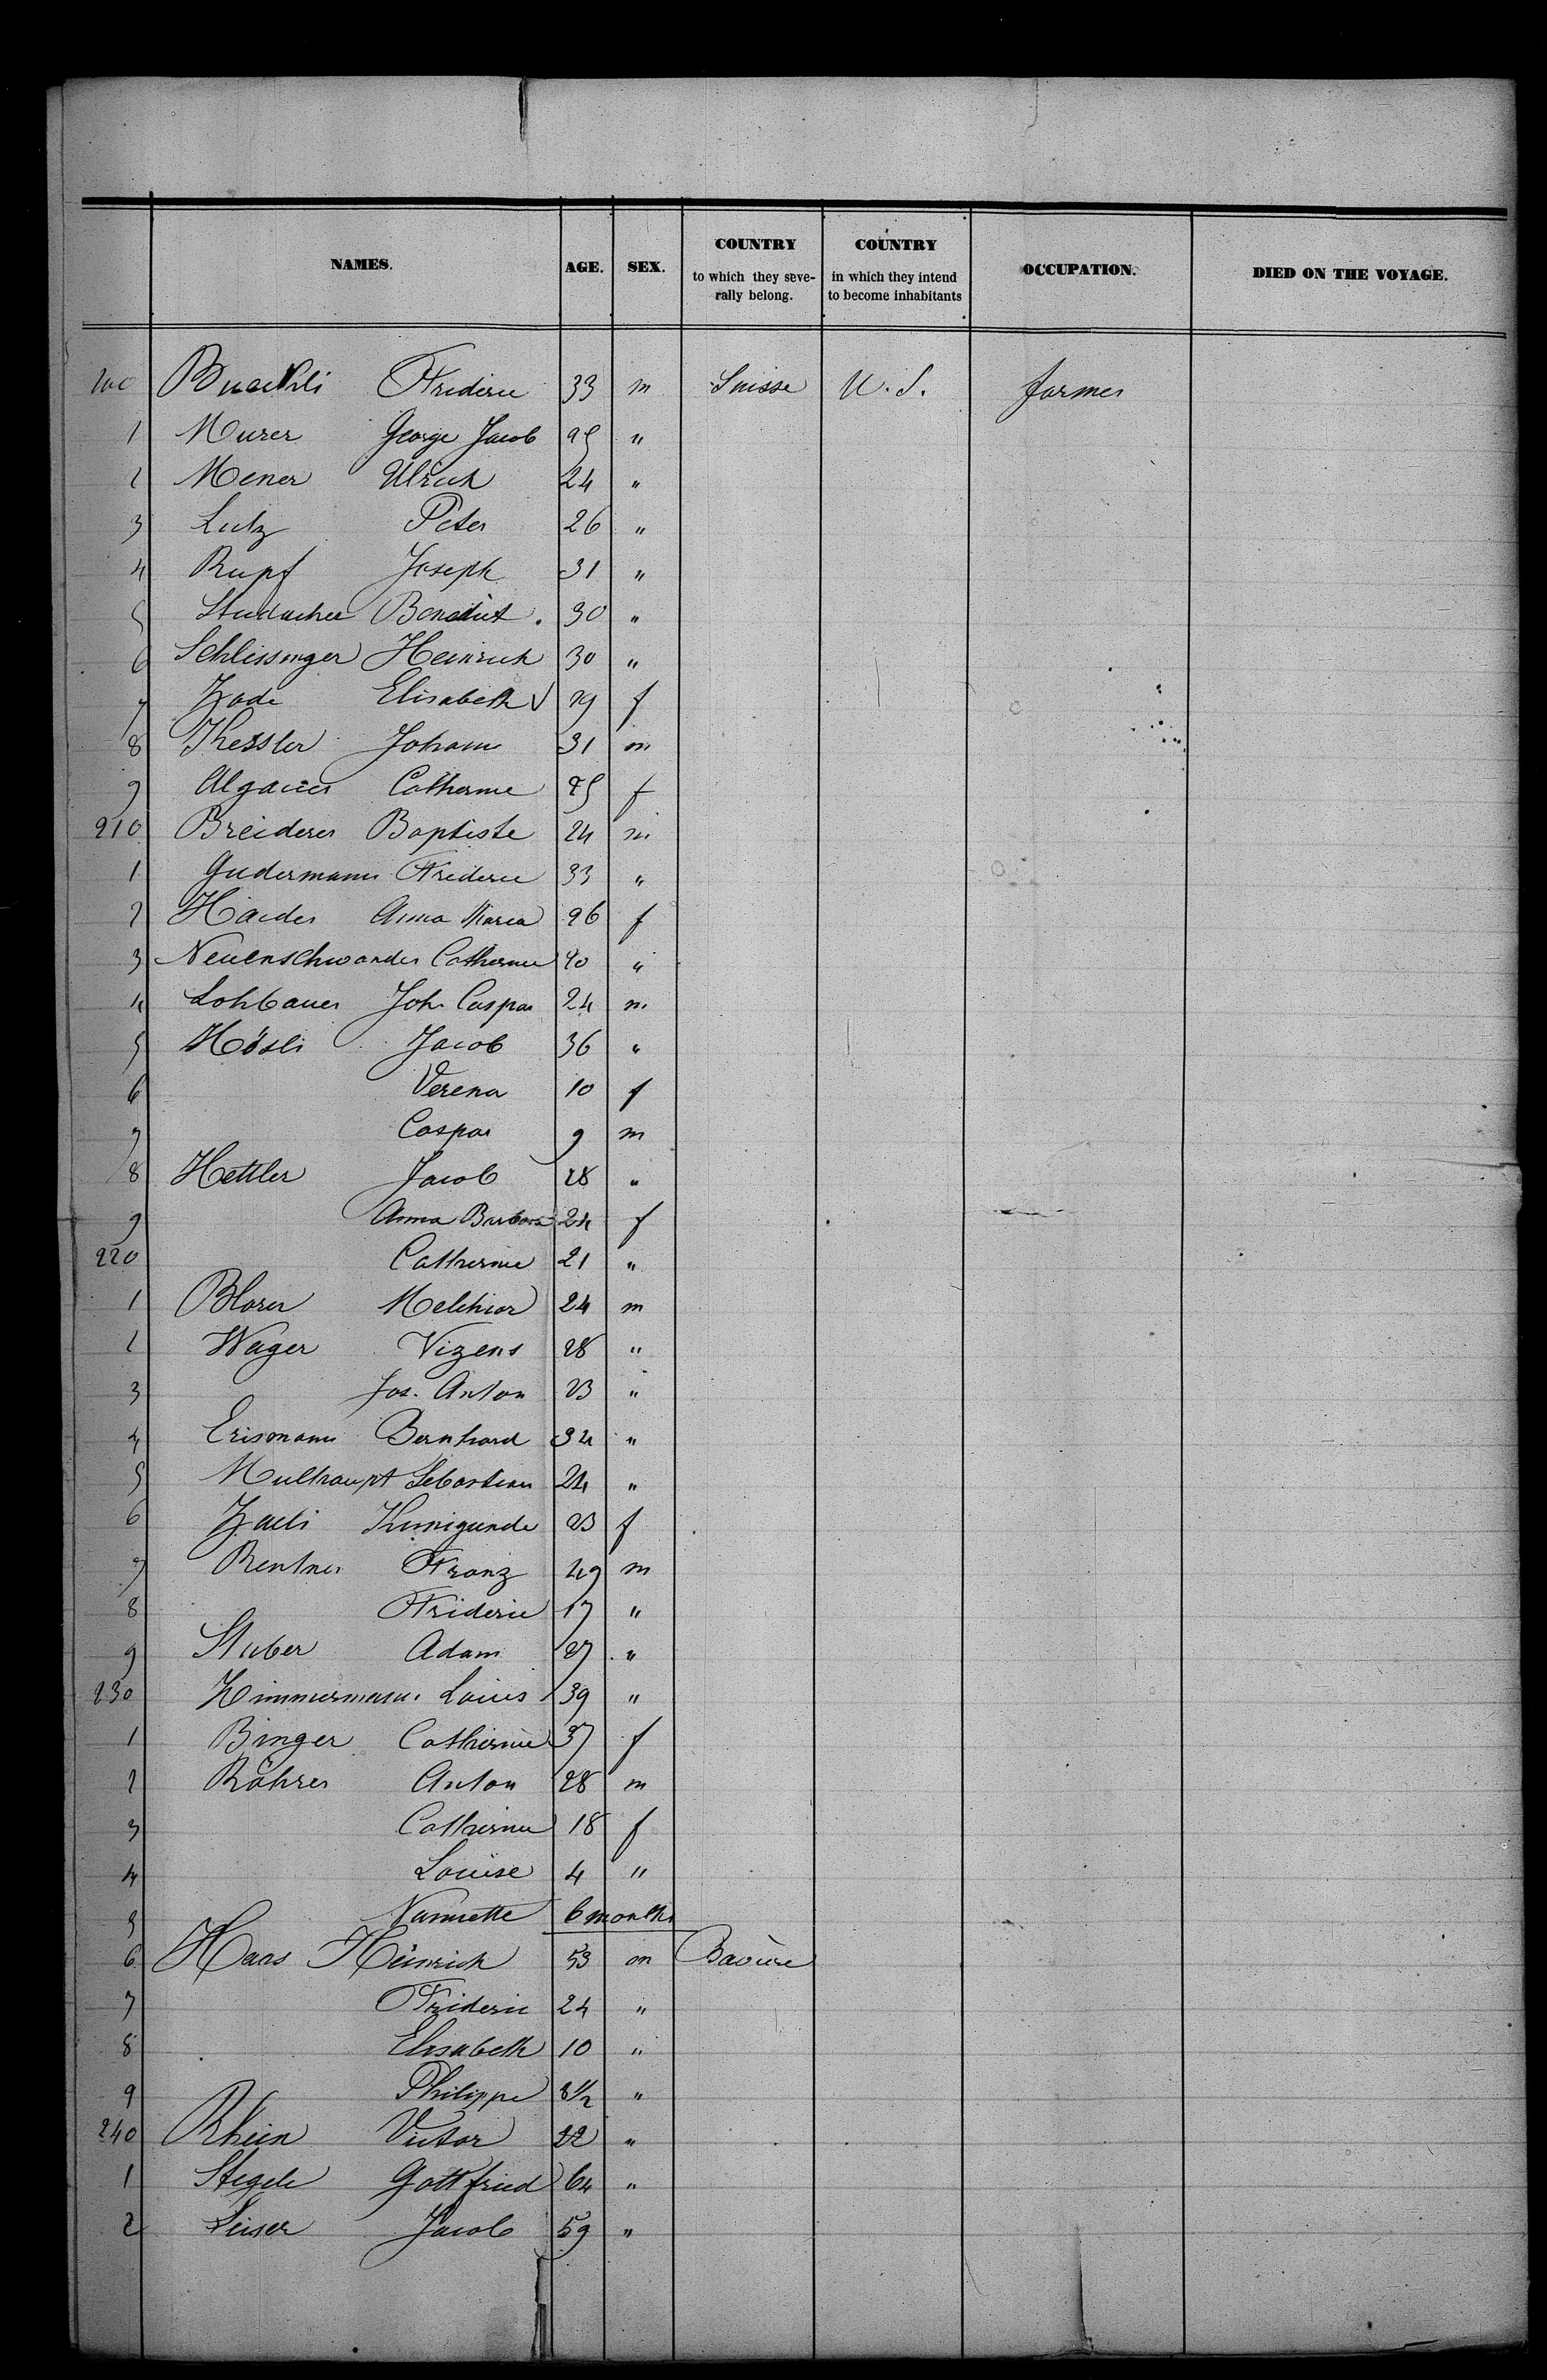 NAMES. AGE. SEX. COUNTRY to which they seve- rally belong. COUNTRY in which they intend to become inhabitants OCCUPATION. DIED ON THE VOYAGE.
200 Buechli Frideric 33 m Suisse U. S. farmer
1 Murer George Jacob 25 "
2 Mener Ulrich 24 "
3 Lutz Peter 26 "
4 Rupf Joseph 31 "
5 Studacher Benedict. 30 "
6 Schlissinger Heinrich 30 "
7 Zode Elisabeth √ 29 f
8 Kessler Johann 31 m
9 Algauer Catherine 25 f
210 Breiderer Baptiste 24 m
1 Gudermann Frideric 33 "
2 Haider Anna Maria 26 f
3 Neuenschwander Catherine 20 "
4 Lohbauer Joh. Caspar 24 m
5 Hösli Jacob 36 "
6 Verena 10 f
7 Caspar 9 m
8 Hettler Jacob 28 "
9 Anna Barbara 24 f
220 Catherine 21 "
1 Blorer Melchior 24 m
2 Wager Vizens 28 "
3 Jos. Anton 23 "
4 Erismann Bernhard 34 "
5 Mulhaupt Sebastian 24 "
6 Zueli Kunigunde 23 f
7 Rentner Franz 49 m
8 Frideric 17 "
9 Stuber Adam 27 "
230 Zimmermann Louis 39 "
1 Binger Catherine 37 f
2 Röhrer Anton 28 m
3 Catherine 18 f
4 Louise 4 "
5 Nannette 6 months
6 Haas Heinrich 53 m Bavière
7 Frideric 24 "
8 Elisabeth 10 "
9 Philippe 8½ "
240 Rhein Victor 22 "
1 Stegele Gottfried 64 "
2 Leiser Jacob 59 "